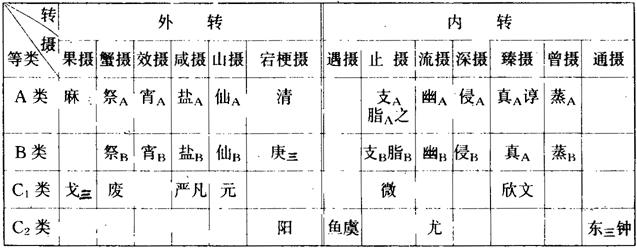 转 外 转 内 转
摄
等类 果摄 蟹摄 效摄 咸摄 山摄 宕梗摄 遇摄 止 摄 流摄 深摄 臻摄 曾摄 通摄
A 类 麻 祭A 宵A 盐A 仙A 清 支A 幽A 侵A 真A谆 蒸A
脂A之
B 类 祭B 宵B 盐B 仙B 庚三 支B脂B 幽B 侵B 真A 蒸B
C₁ 类 戈三 废 严凡 元 微 欣文
C₂ 类 阳 鱼虞 尤 东三钟